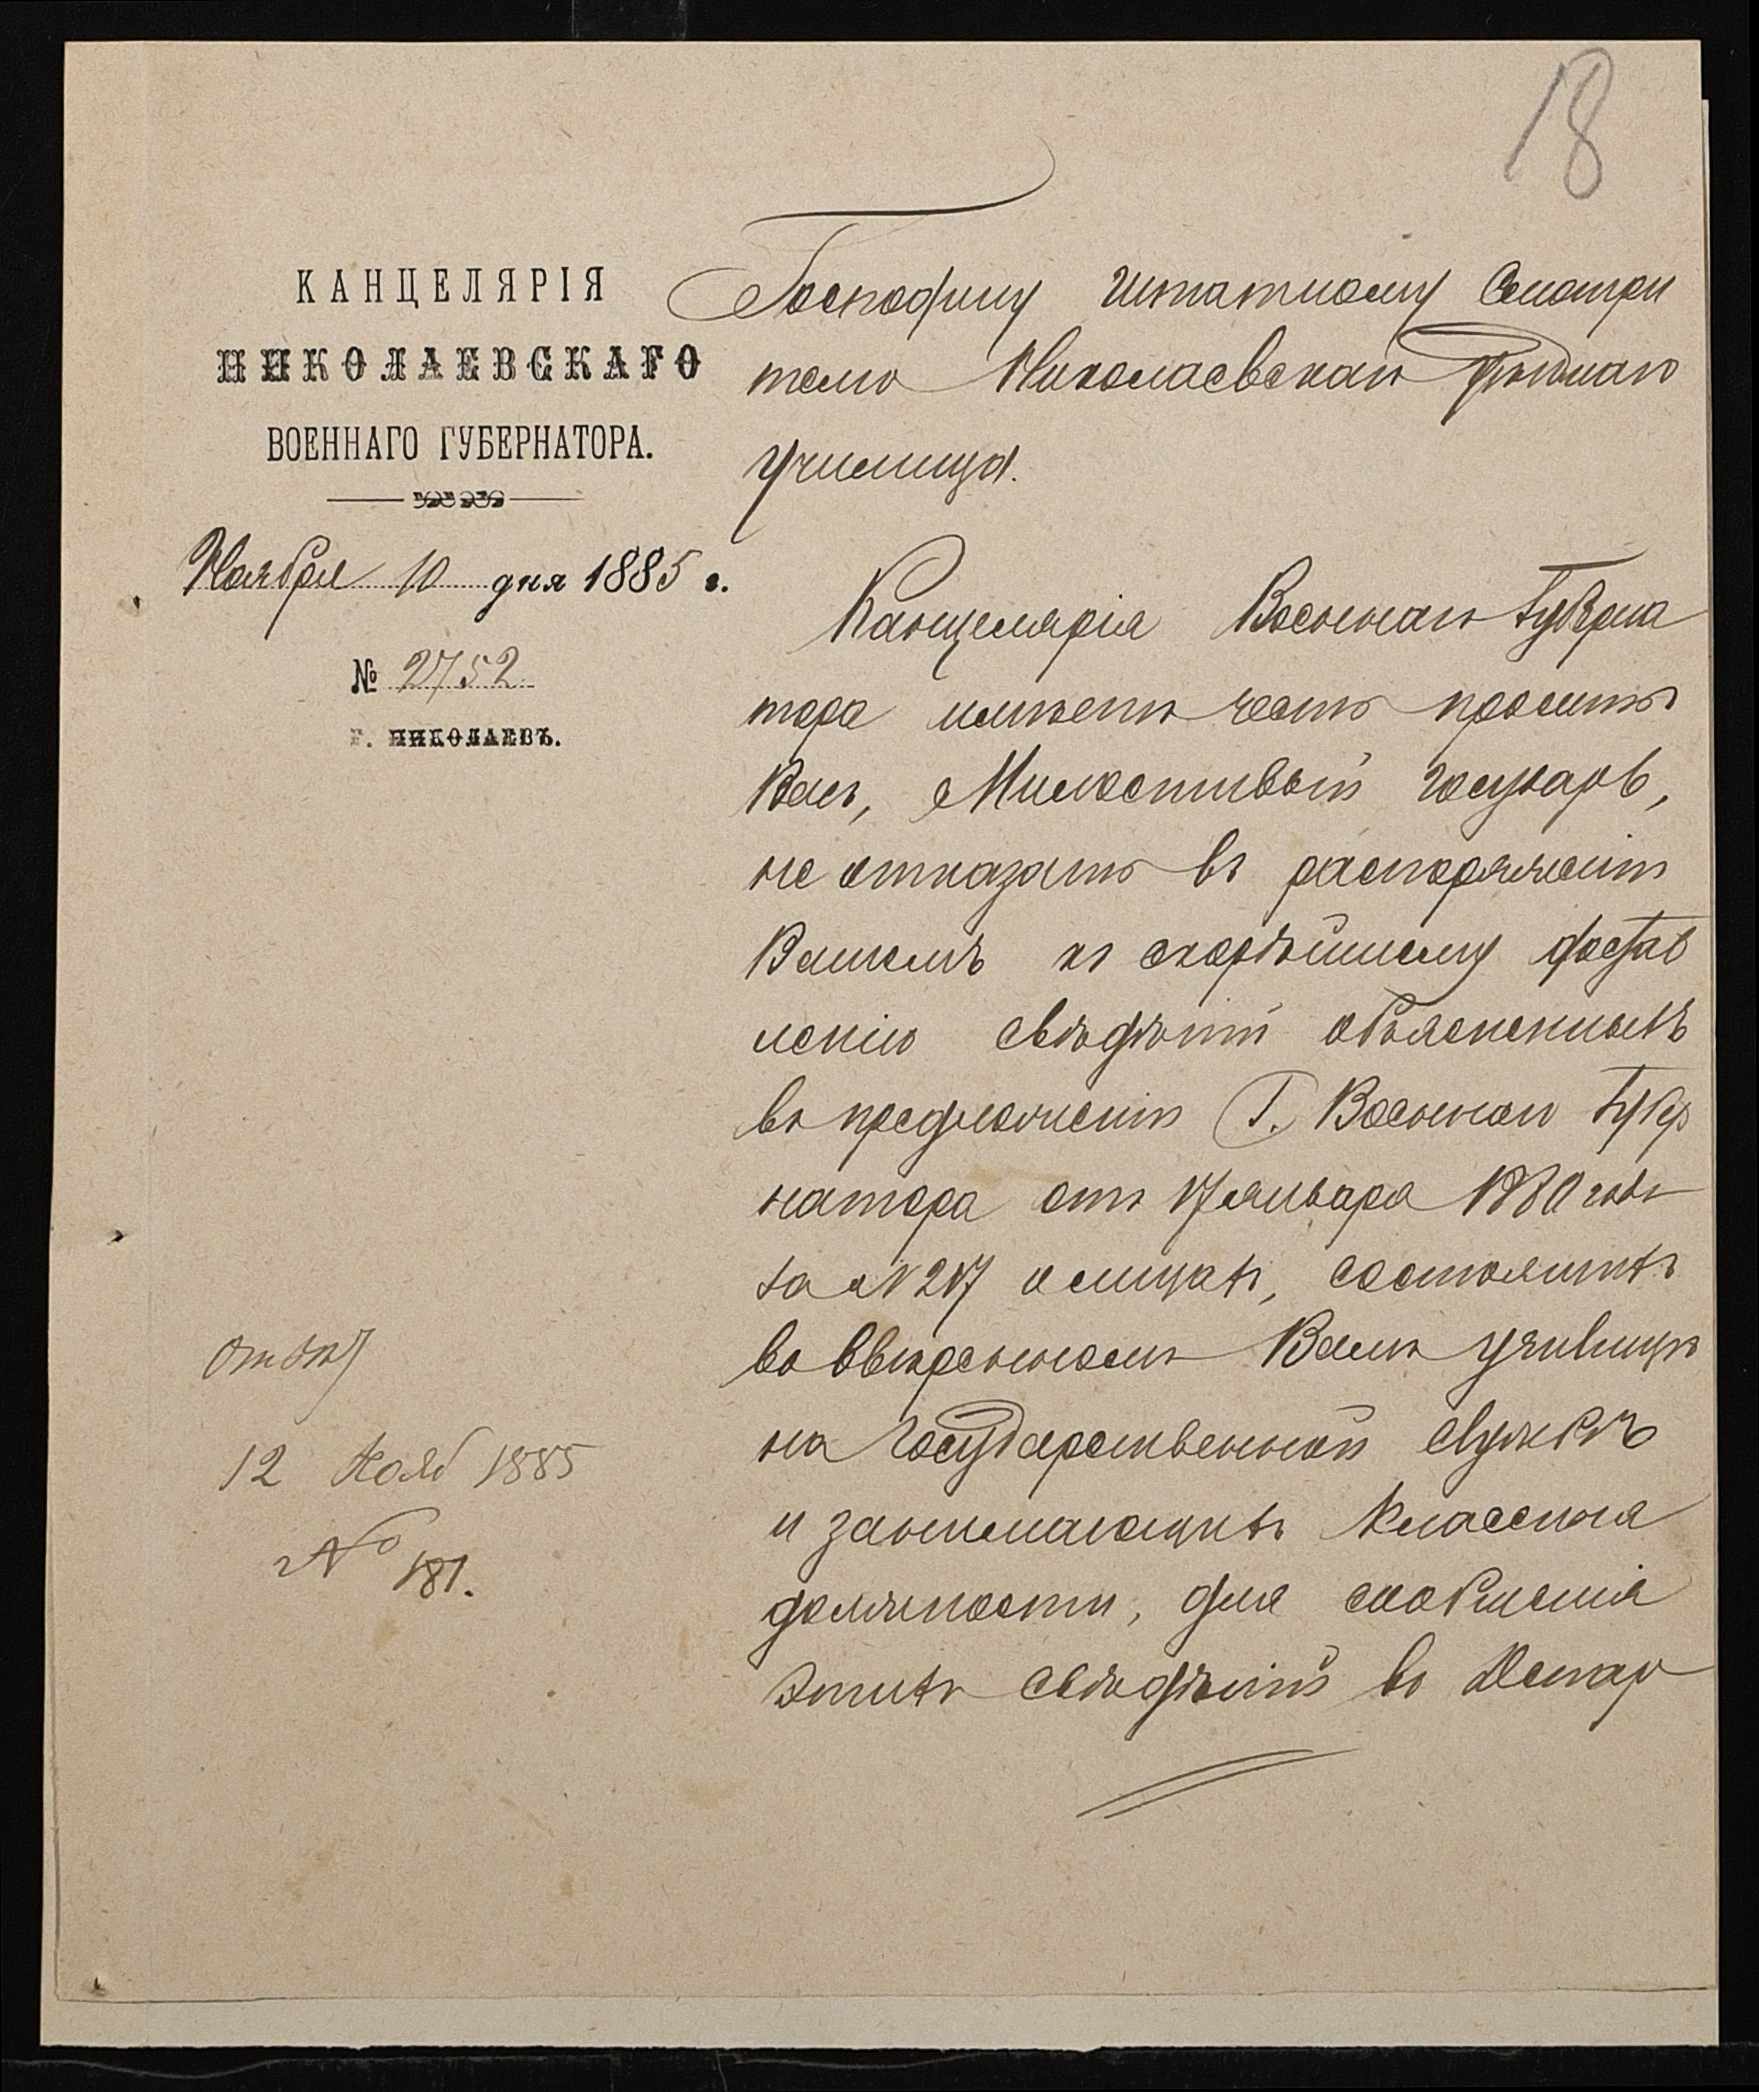 18
КАНЦЕЛЯРІЯ
НИКОЛАЕВСКАГО
ВОЕННАГО ГУБЕРНАТОРА.
Ноября 10 дня 1885 г.
№ 2752
Г. НИКОЛАЕВЪ.
Господину Штатному Смотри
телю Николаевскаго Уѣзднаго
училища.
Канцелярія Военнаго Губерна
тора имѣетъ честь просить
Васъ, Милостивый Государь,
не отказать въ распоряженіи
Вашемъ къ скорѣйшему достав
ленію свѣдѣній объясненныхъ
въ предложеніи Г. Военнаго Губер
натора отъ 17 января 1880 года
за № 217 о лицахъ, состоящихъ
во ввѣренномъ Вамъ училищѣ
на Государственной службѣ
и занимающихъ классныя
должности, для сообщенія
этихъ свѣдѣній въ Депар
12 Нояб 1885
№ 181.